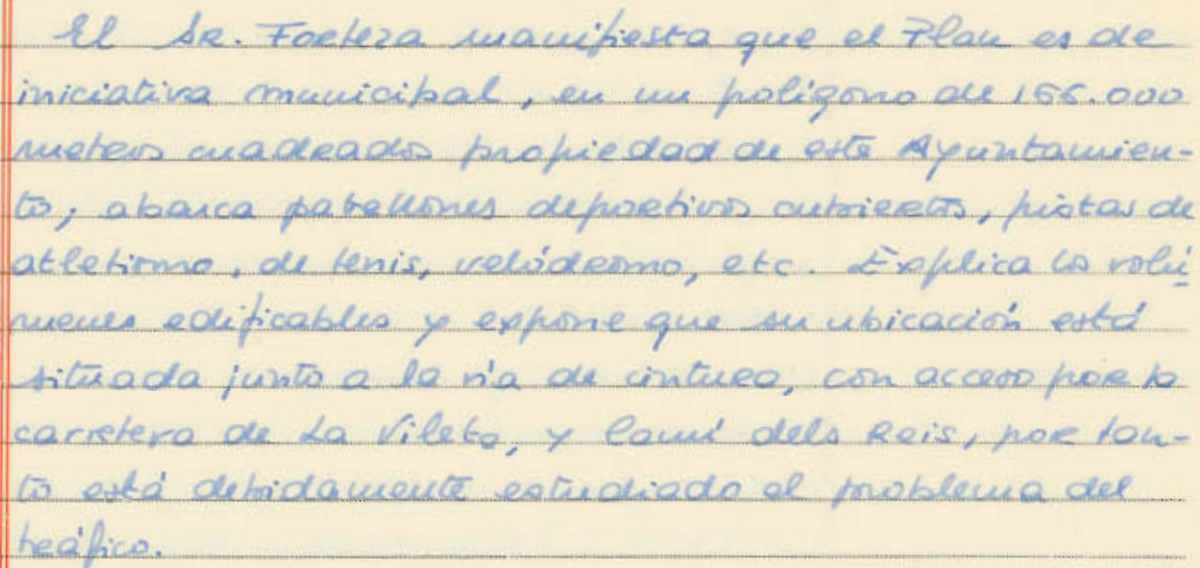 El Sr. Forteza manifiesta que el Plan es de
iniciativa municipal, en un polígono de 166.000
metros cuadrados propiedad de este Ayuntamien-
to; abarca pabellones deportivos cubiertos, pistas de
atletismo, de tenis, velódromo, etc. Explica los volú-
menes edificables y expone que su ubicación está
situada junto a la vía de cintura, con acceso por la
carretera de La Vileta, y Camí dels Reis, por tan-
to está debidamente estudiado el problema del
tráfico.